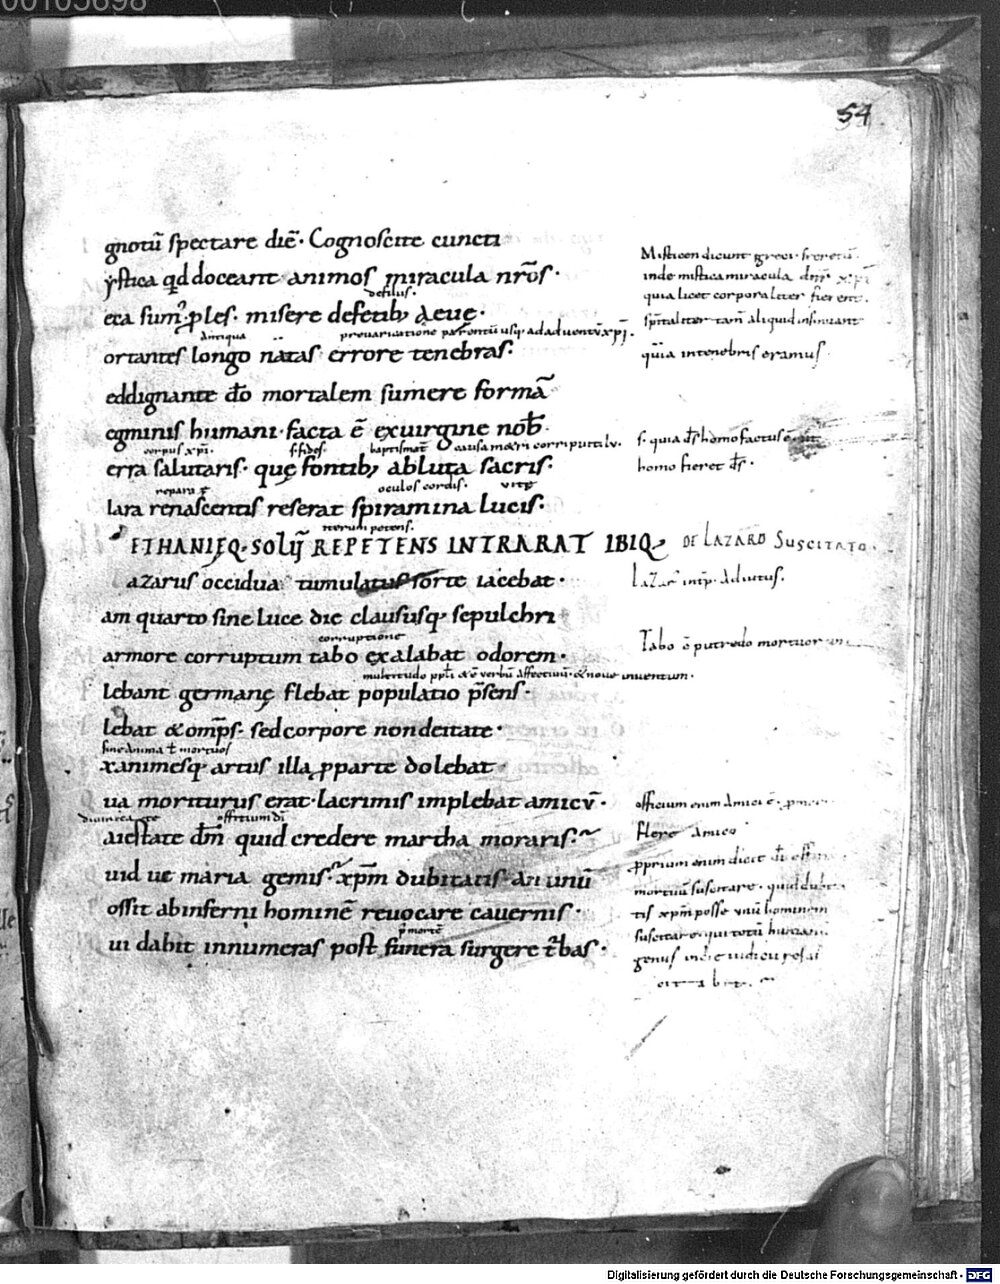 00105698
54
gnotū spectare diē· Cognoscite cuncti
ystica qd doceant animos miracula nrōs·
defilus·
eta sum' ples· misere defetib; aeuę·
antiqua preuaricatione parentū usq; ad aduentū xpi·
ortantes longo natas errore tenebras·
eddignante do mortalem sumere formā
egminis humani· facta ē exuirgine nob·
corpus xpi· s· fides· baptismat
erra salutaris· quę fontib; abluta sacris·
oculos cordis· vitę
lara renascentis reserat spiramina lucis·
iterum petens·
ETHANIĘQ· SOLIJ REPETENS INTRARAT IBIQ; DE LAZARO SUSCITATO·
azarus occidua tumulatus sorte iacebat·
am quarto sine luce die claususq; sepulchri
corruptione
armore corruptum tabo exalabat odorem·
multitudo ppli & ē verbū affectiuū· & noue inuentum·
lebant germanę flebat populatio psens·
lebat & omps· sed corpore non deitate·
sine anima t mortuos
xanimesq; artus illa pparte dolebat
ua moriturus erat· lacrimis implebat amicū·
offitium di
aiestate dm quid credere martha moraris·
uid ue maria gemis· xpm dubitatis· an unū
ossit ab inferni hominē reuocare cauernis·
p' mortē
ui dabit innumeras post funera surgere t'bas·
Misticon dicunt greci·
inde mistica miracula xpi
quia licet corporaliter fierent·
spitaliter tam aliquid insinuant
quia intenebris eramus
s· quia ds homo factus ē ut
homo fieret ds·
Laz intp· adiutus·
Tabo ē putredo
officium enim amici ē·
flere amico
pprium enim dicit
mortuū suscitare· quid
tis xpm posse unū hominem
suscitare qui totū
genus in die iudicii
Digitalisierung gefördert durch die Deutsche Forschungsgemeinschaft - DFG